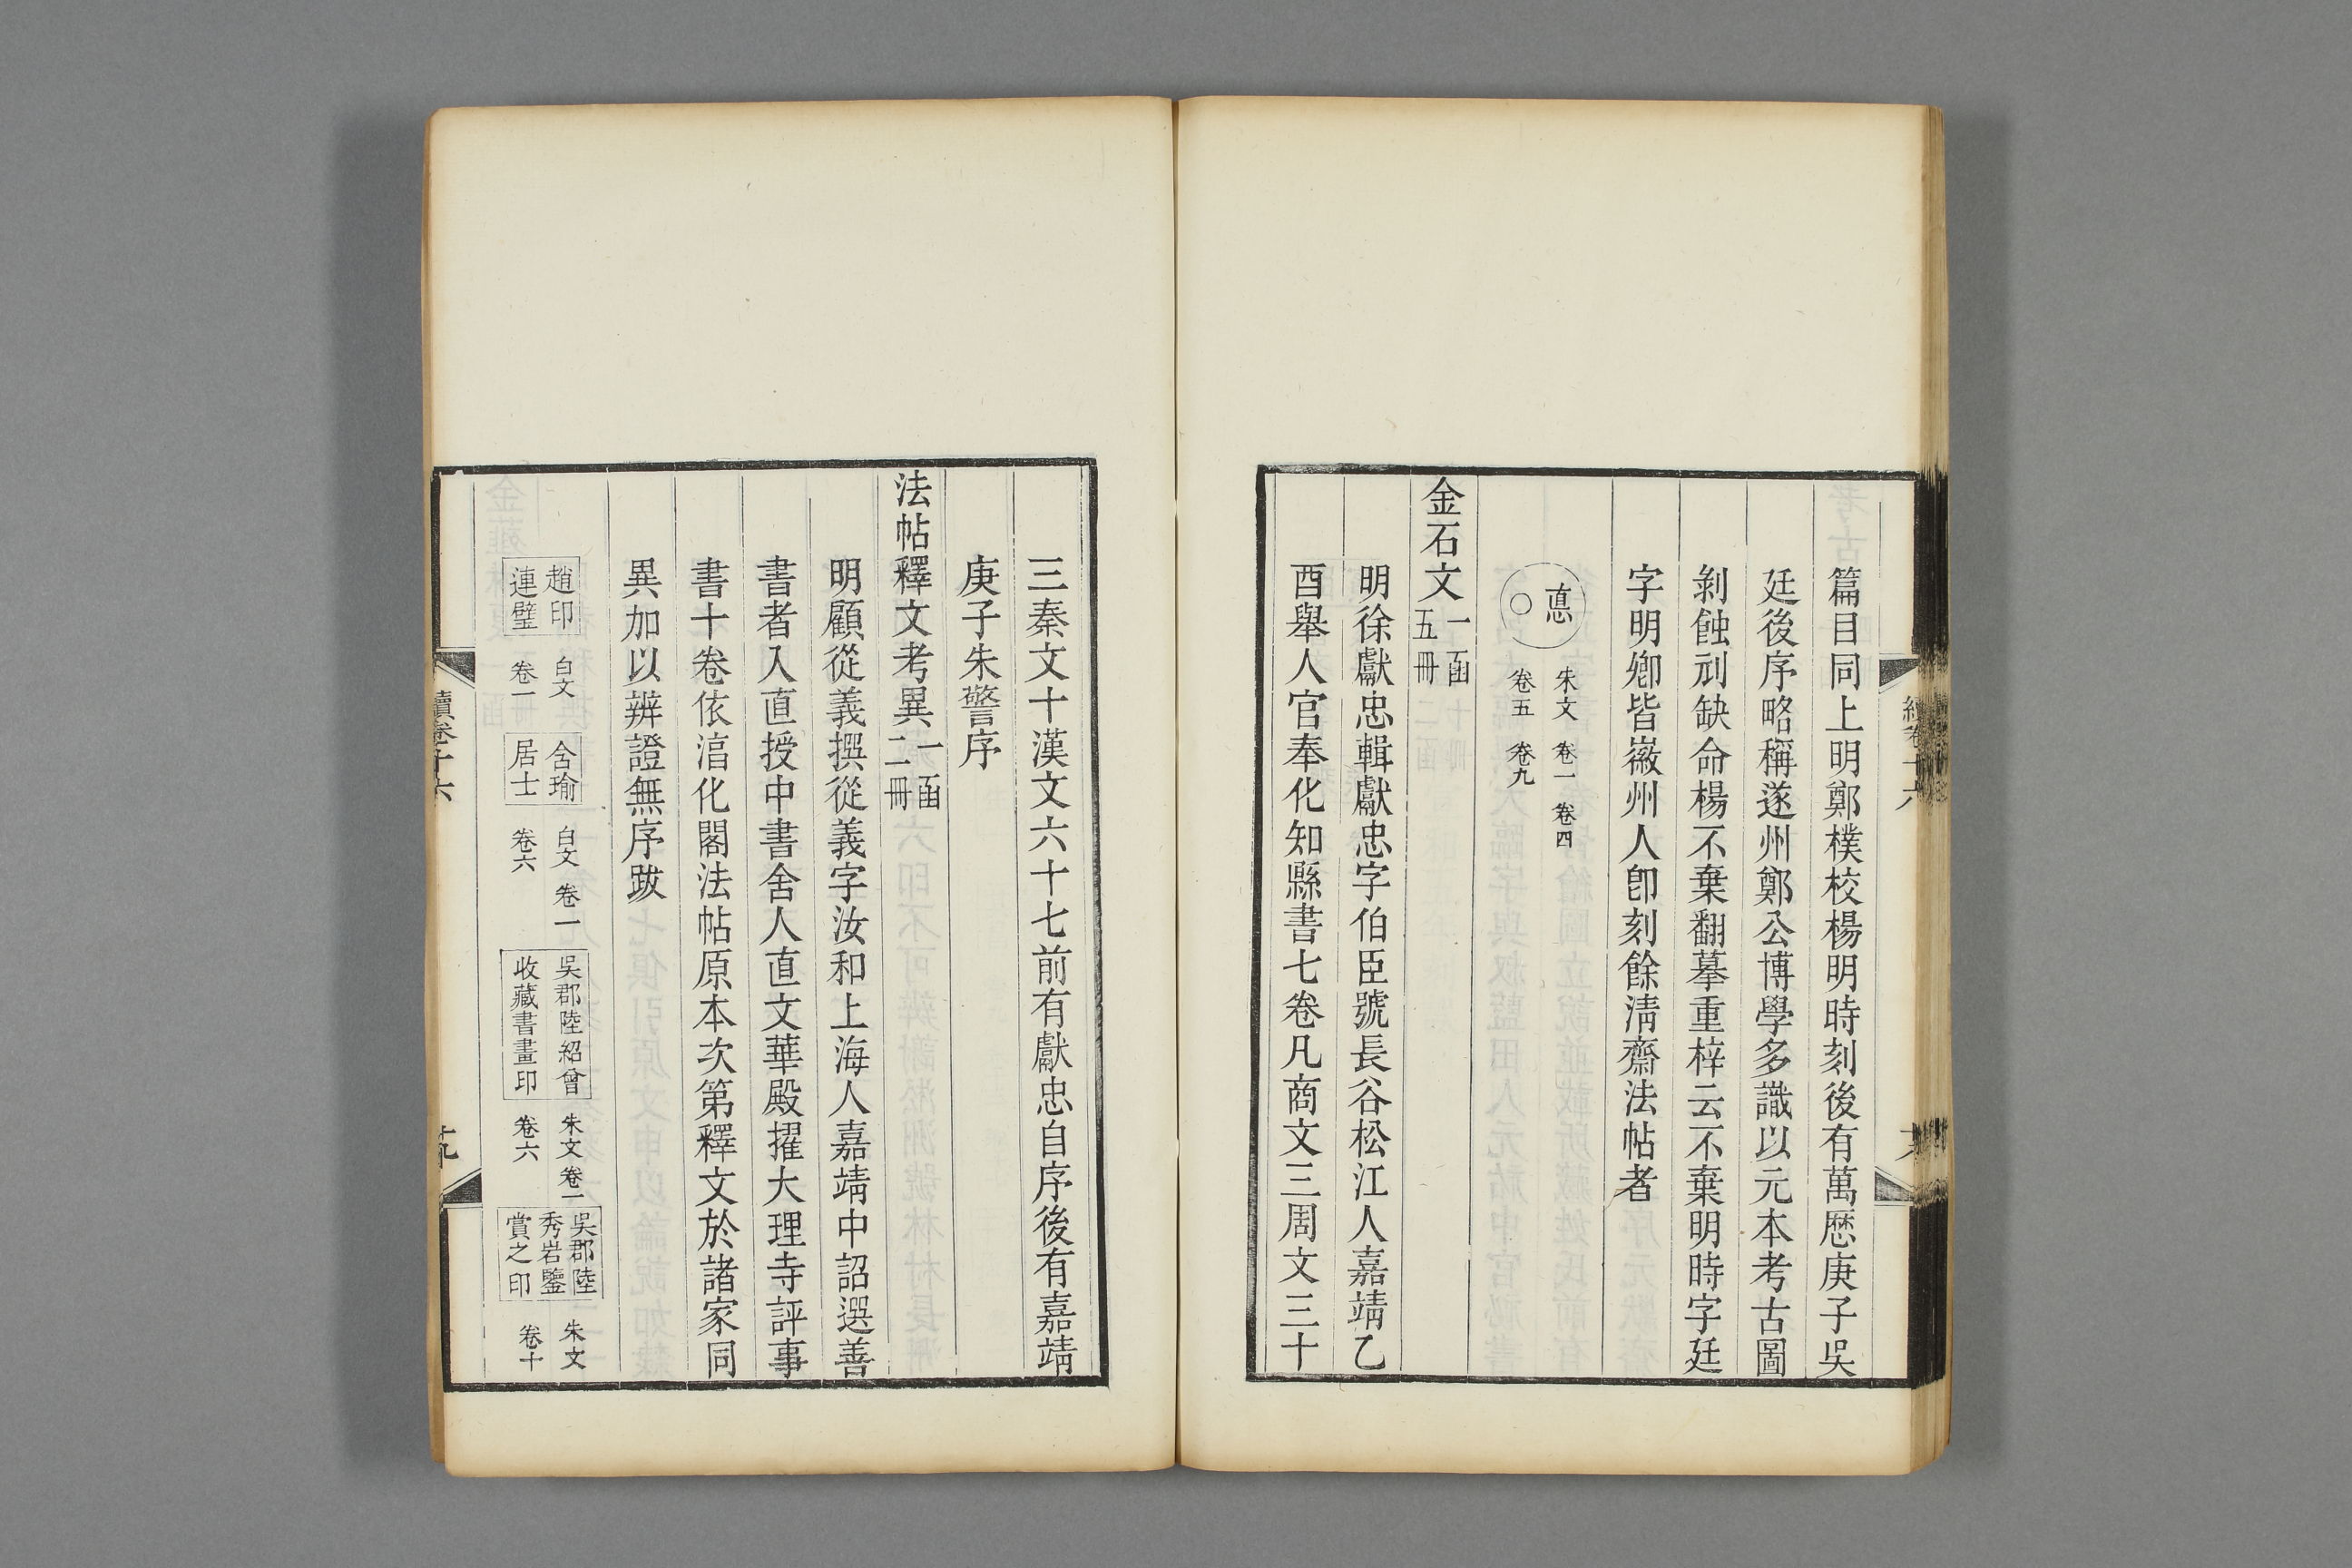 篇目同上明鄭樸校楊明時刻後有萬厯庚子吳
廷後序略稱遂州鄭公博學多識以元本考古圖
剝蝕刓缺命楊不棄翻摹重梓云不棄明時字廷
字明卿皆嶶州人卽刻餘清齋法帖者
悳〇
朱文 卷一 卷四
卷五 卷九
金石文
一函
五冊
明徐獻忠輯獻忠字伯臣號長谷松江人嘉靖乙
酉舉人官奉化知縣書七卷凡商文三周文三十
三秦文十漢文六十七前有獻忠自序後有嘉靖
庚子朱警序
法帖釋文考異
一函
二冊
明顧從義撰從義字汝和上海人嘉靖中詔選善
書者入直授中書舍人直文華殿擢大理寺評事
書十卷依湻化閣法帖原本次第釋文於諸家同
異加以辨證無序跋
趙印
連璧
白文
卷一
含瑜
居士
白文 卷一
卷六
吳郡陸紹曾
收藏書畫印
朱文 卷一
卷六
吳郡陸
秀岩鑒
賞之印
朱文
卷十
續卷十六
十九